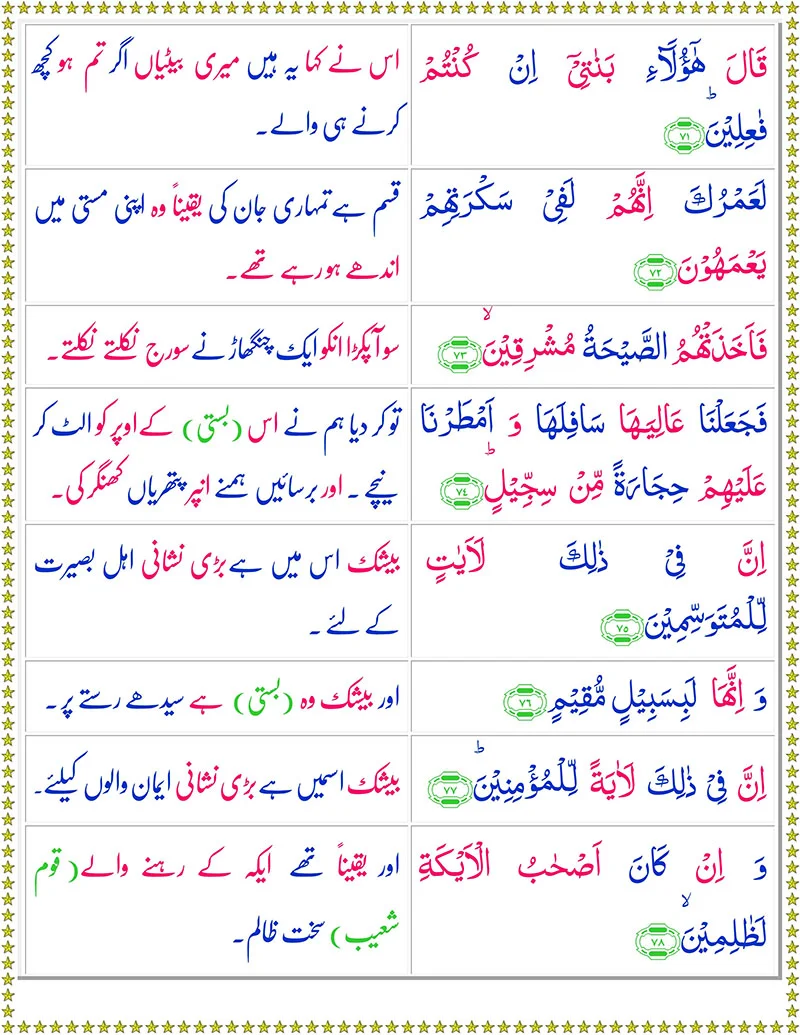 قَالَ هٰۤؤُلَآءِ بَنٰتِىْۤ اِنْ كُنْتُمْ
فٰعِلِيْنَؕ ﴿٧١﴾
اس نے کہا یہ ہیں میری بیٹیاں اگر تم ہو کچھ
کرنے ہی والے۔
لَعَمْرُكَ اِنَّهُمْ لَفِىْ سَكْرَتِهِمْ
يَعْمَهُوْنَ ﴿٧٢﴾
قسم ہے تمہاری جان کی یقیناً وہ اپنی مستی میں
اندھے ہو رہے تھے۔
فَاَخَذَتْهُمُ الصَّيْحَةُ مُشْرِقِيْنَۙ ﴿٧٣﴾
سو آ پکڑا انکو ایک چنگھاڑ نے سورج نکلتے نکلتے۔
فَجَعَلْنَا عَالِيَهَا سَافِلَهَا وَ اَمْطَرْنَا
عَلَيْهِمْ حِجَارَةً مِّنْ سِجِّيْلٍؕ ﴿٧٤﴾
تو کر دیا ہم نے اس (بستی) کے اوپر کو الٹ کر
نیچے۔ اور برسائیں ہمنے انپر پتھریاں کھنگر کی۔
اِنَّ فِىْ ذٰلِكَ لَاٰيٰتٍ
لِّلْمُتَوَسِّمِيْنَ ﴿٧٥﴾
بیشک اس میں ہے بڑی نشانی اہل بصیرت
کے لئے۔
وَ اِنَّهَا لَبِسَبِيْلٍ مُّقِيْمٍ ﴿٧٦﴾
اور بیشک وہ (بستی) ہے سیدھے رستے پر۔
اِنَّ فِىْ ذٰلِكَ لَاٰيَةً لِّلْمُؤْمِنِيْنَؕ ﴿٧٧﴾
بیشک اسمیں ہے بڑی نشانی ایمان والوں کیلئے۔
وَ اِنْ كَانَ اَصْحٰبُ الْاَيْكَةِ
لَظٰلِمِيْنَۙ ﴿٧٨﴾
اور یقیناً تھے ایکہ کے رہنے والے (قوم
شعیب) سخت ظالم۔